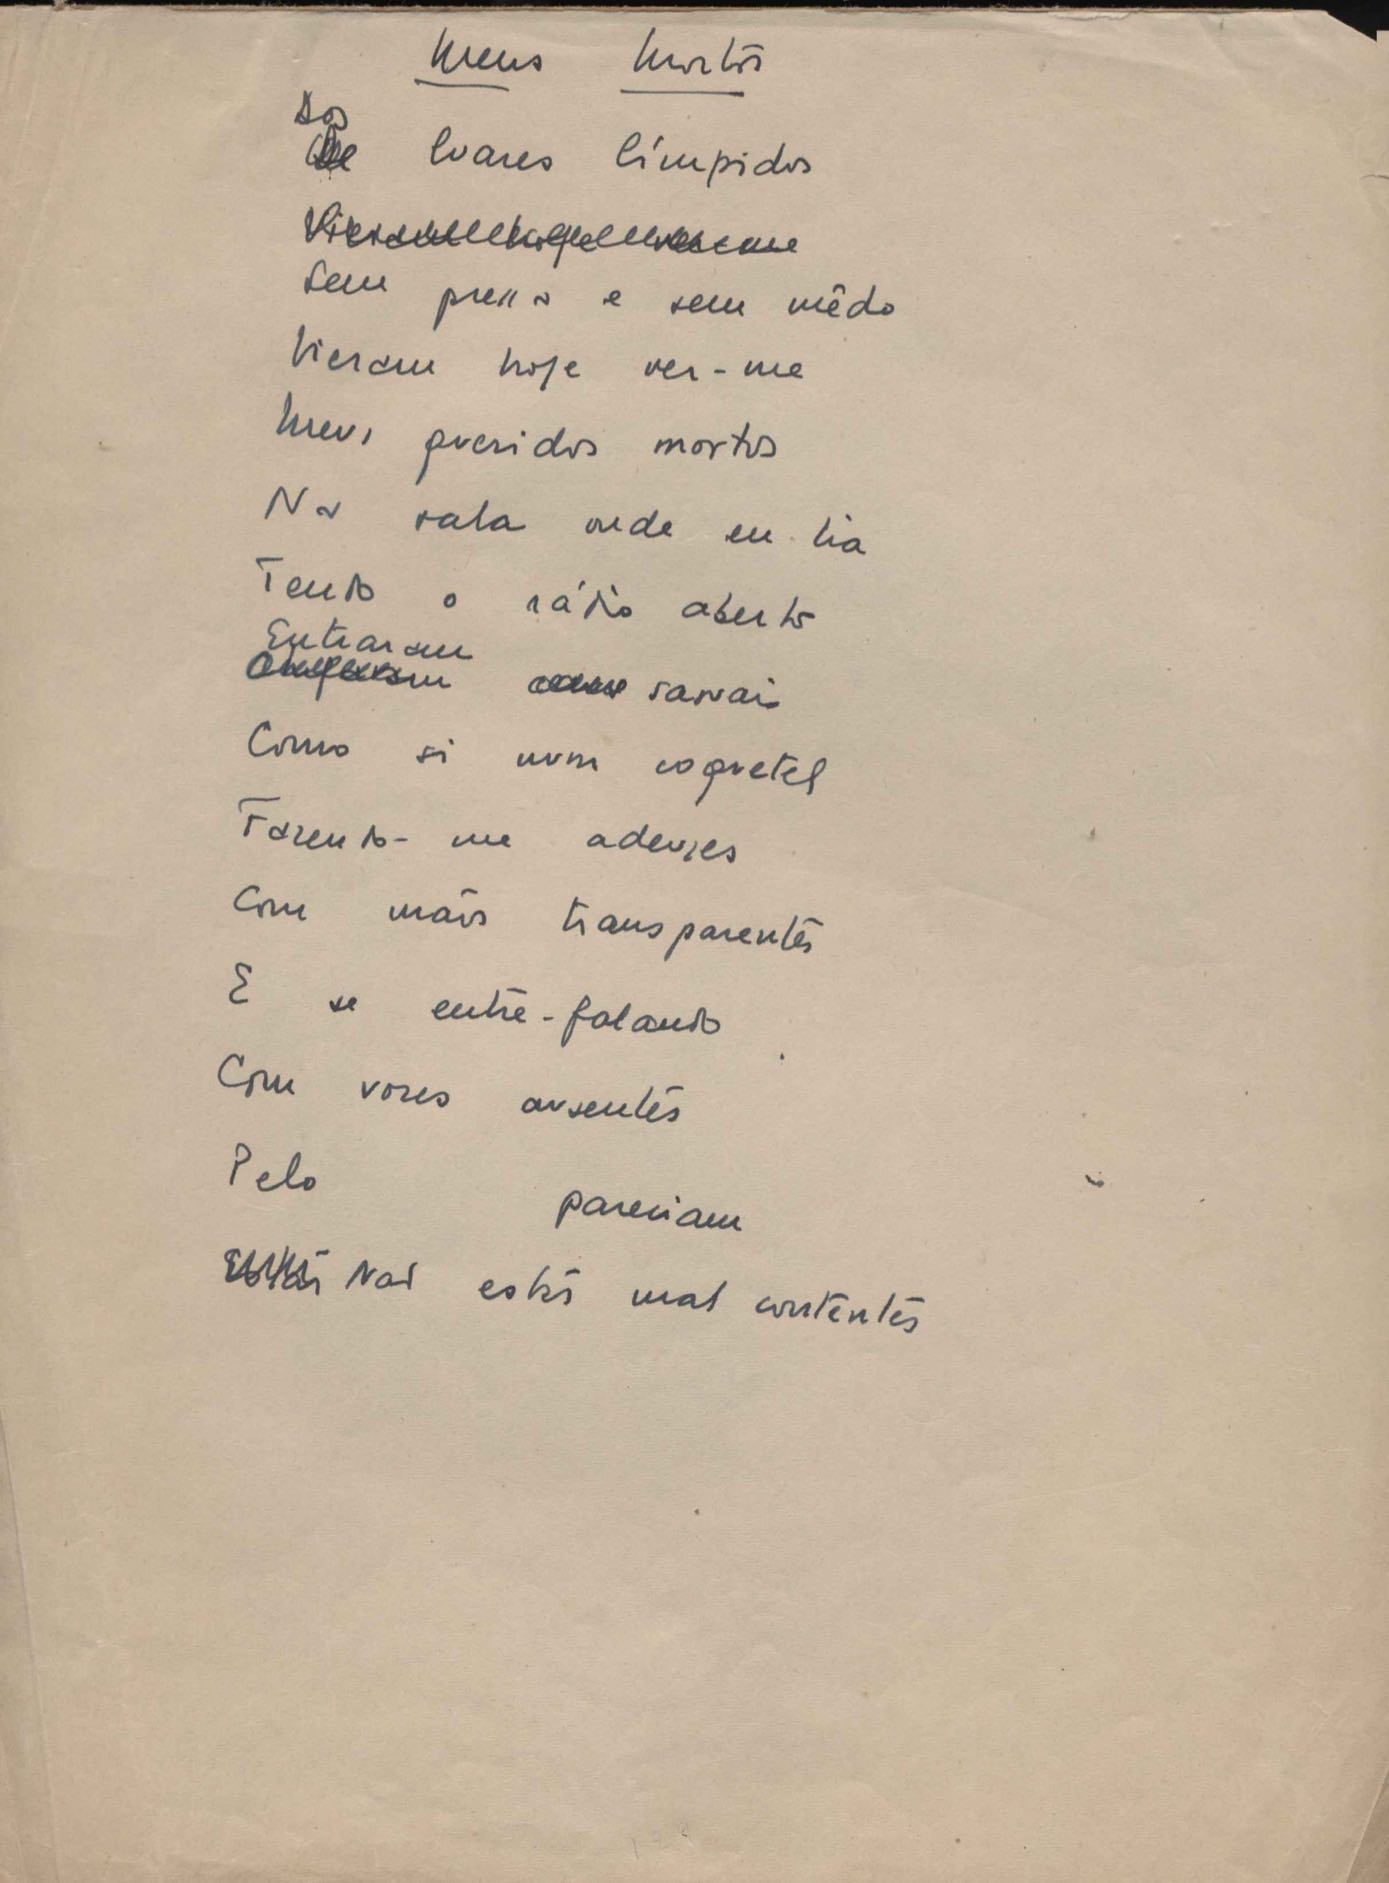 Meus Mortos
Dos
De luares límpidos
Vieram hoje ver-me
Sem pressa e sem mêdo
Vieram hoje ver-me
Meus queridos mortos
Na sala onde eu lia
Tendo o rádio aberto
Entraram
Como si num coquetel
Fazendo-me adeuses
Com mãos transparentes
E se entre-falando
Com vozes ausentes
Pelo pareciam
Não estar mal contentes